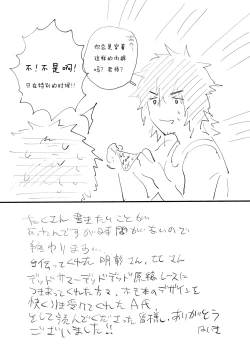 你总是穿着
这样的内裤
吗？老师？
不！不是啊！
只在特别的时候！！
たくさん書きたいことが
あったんですが時間がないので
終わります。
手伝ってくれた 明彰さん、
デッドサマーデッドデッド原稿レースに
つきあってくれた方々、ホモ本のデザインを
快く引き受けてくれたA氏
そして読んでくださった皆様、ありがとう
ございました!!